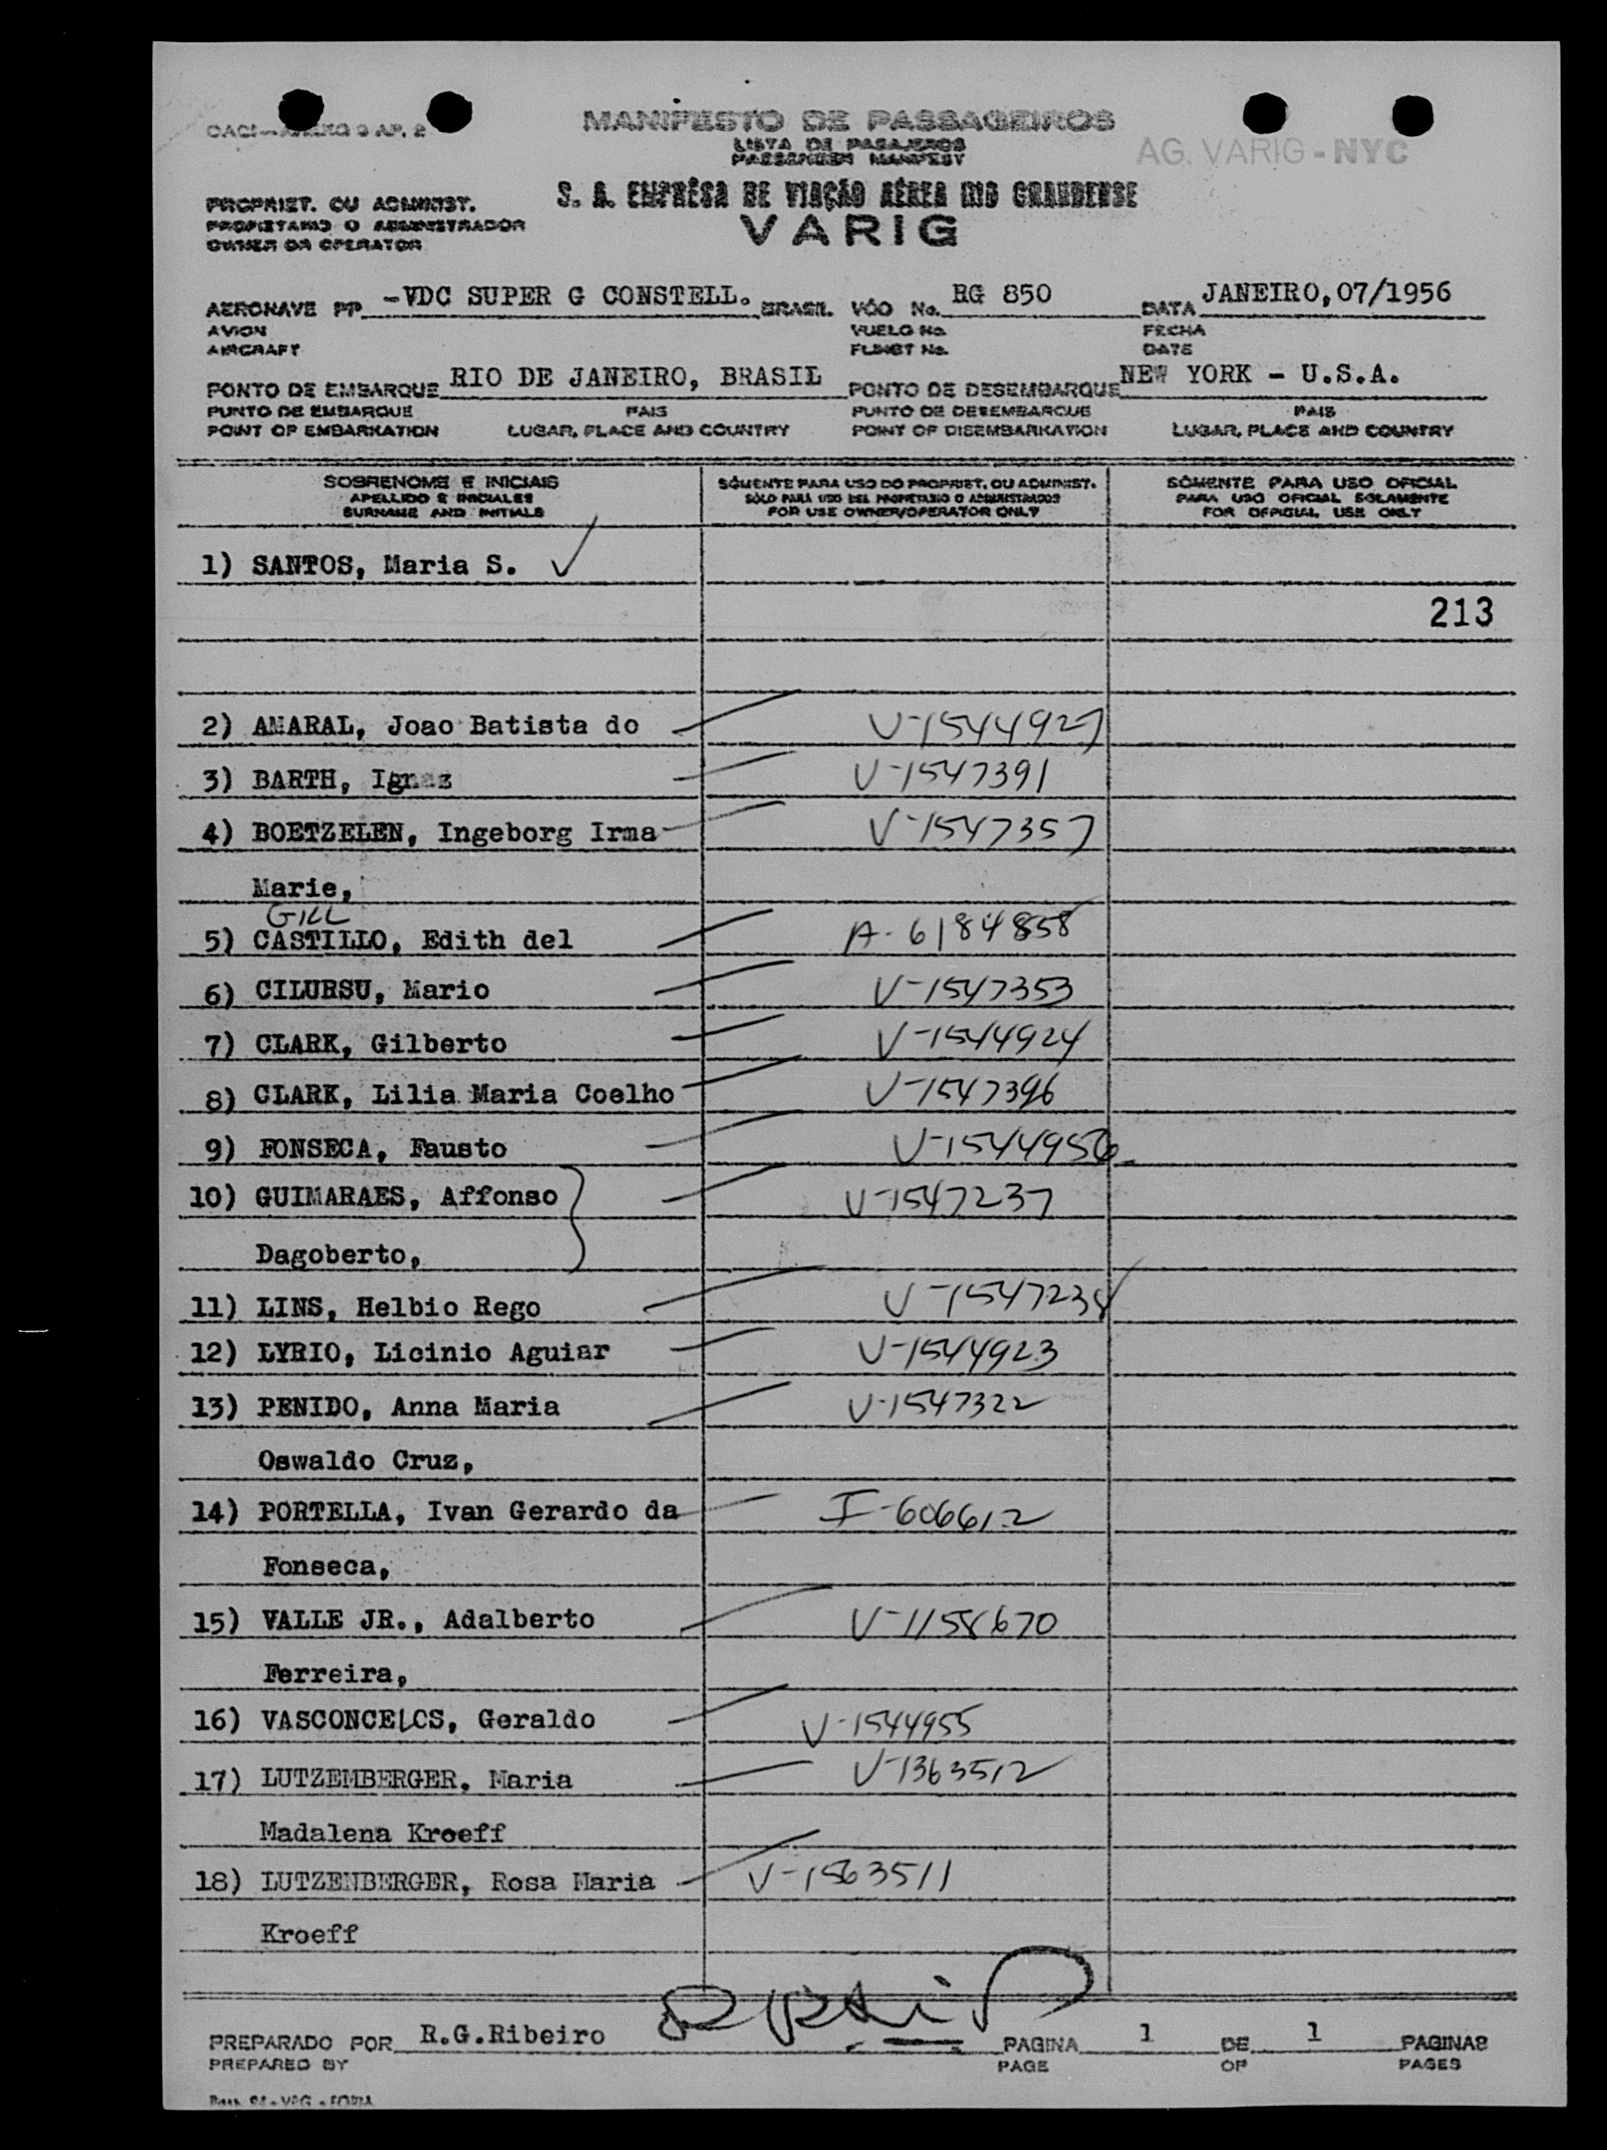 OACI - ANEXO 9 AP. 2
MANIFESTO DE PASSAGEIROS
LISTA DE PASAJEROS
PASSENGER MANIFEST
AG. VARIG - NYC
S. A. EMPRÊSA DE VIAÇÃO AÉREA RIO GRANDENSE
VARIG
PROPRIET. OU ADMINIST.
PROPIETARIO O ADMINISTRADOR
OWNER OR OPERATOR
AERONAVE PP -VDC SUPER G CONSTELL. BRASIL VÔO No. RG 850 DATA JANEIRO,07/1956
AVION VUELO No. FECHA
AIRCRAFT FLIGHT No. DATE
PONTO DE EMBARQUE RIO DE JANEIRO, BRASIL PONTO DE DESEMBARQUE NEW YORK - U.S.A.
PUNTO DE EMBARQUE PAIS PUNTO DE DESEMBARQUE PAIS
POINT OF EMBARKATION LUGAR, PLACE AND COUNTRY POINT OF DISEMBARKATION LUGAR, PLACE AND COUNTRY
SOBRENOME E INICIAIS SÒMENTE PARA USO DO PROPRIET. OU ADMINIST. SÒMENTE PARA USO OFICIAL
APELLIDO E INICIALES SOLO PARA USO DEL PROPIETARIO O ADMINISTRADOR PARA USO OFICIAL SOLAMENTE
SURNAME AND INITIALS FOR USE OWNER/OPERATOR ONLY FOR OFFICIAL USE ONLY
1) SANTOS, Maria S.
213
2) AMARAL, Joao Batista do V-1544927
3) BARTH, Ignaz V-1547391
4) BOETZELEN, Ingeborg Irma V-1547357
Marie,
GILL
5) CASTILLO, Edith del A-6184858
6) CILURSU, Mario V-1547353
7) CLARK, Gilberto V-1544924
8) CLARK, Lilia Maria Coelho V-1547396
9) FONSECA, Fausto V-1544956
10) GUIMARAES, Affonso V-1547237
Dagoberto,
11) LINS, Helbio Rego V-1547234
12) LYRIO, Licinio Aguiar V-1544923
13) PENIDO, Anna Maria V-1547322
Oswaldo Cruz,
14) PORTELLA, Ivan Gerardo da I-606612
Fonseca,
15) VALLE JR., Adalberto V-1158670
Ferreira,
16) VASCONCELCS, Geraldo V-1544955
17) LUTZEMBERGER, Maria V-1363512
Madalena Kroeff
18) LUTZENBERGER, Rosa Maria V-1563511
Kroeff
PREPARADO POR R.G.Ribeiro PAGINA 1 DE 1 PAGINAS
PREPARED BY PAGE OF PAGES